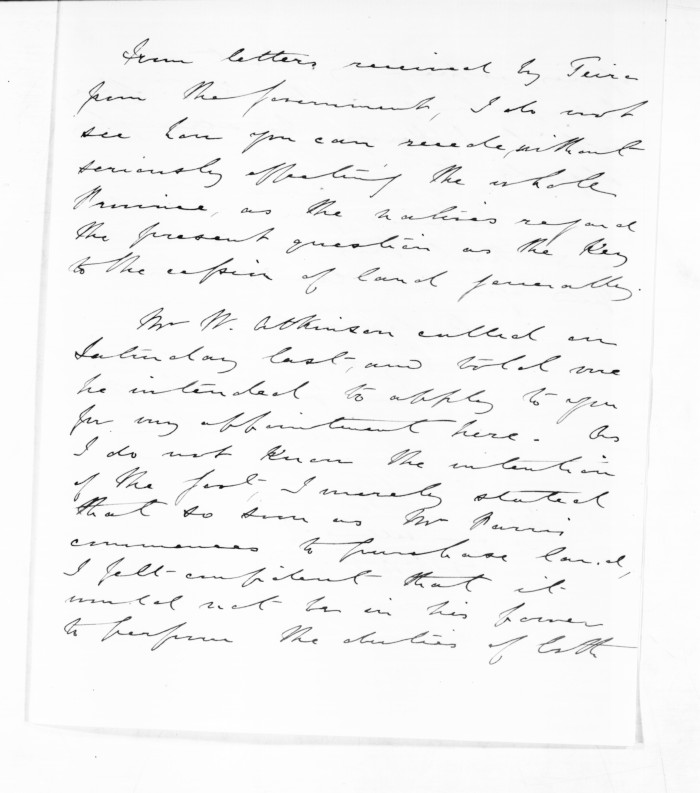 From letters received by Teira
from the Government, I do not
see how you can recede, without
seriously affecting the whole
Province, as the natives regard
the present question as the key
to the cession of land generally.
Mr W. Atkinson called on
Saturday last, and told me
he intended to apply to you
for my appointment here. As
I do not know the intention
of the Govt, I merely stated
that so soon as Mr Parris
commences to purchase land,
I felt confident that it
would not be in his power
to perform the duties of both